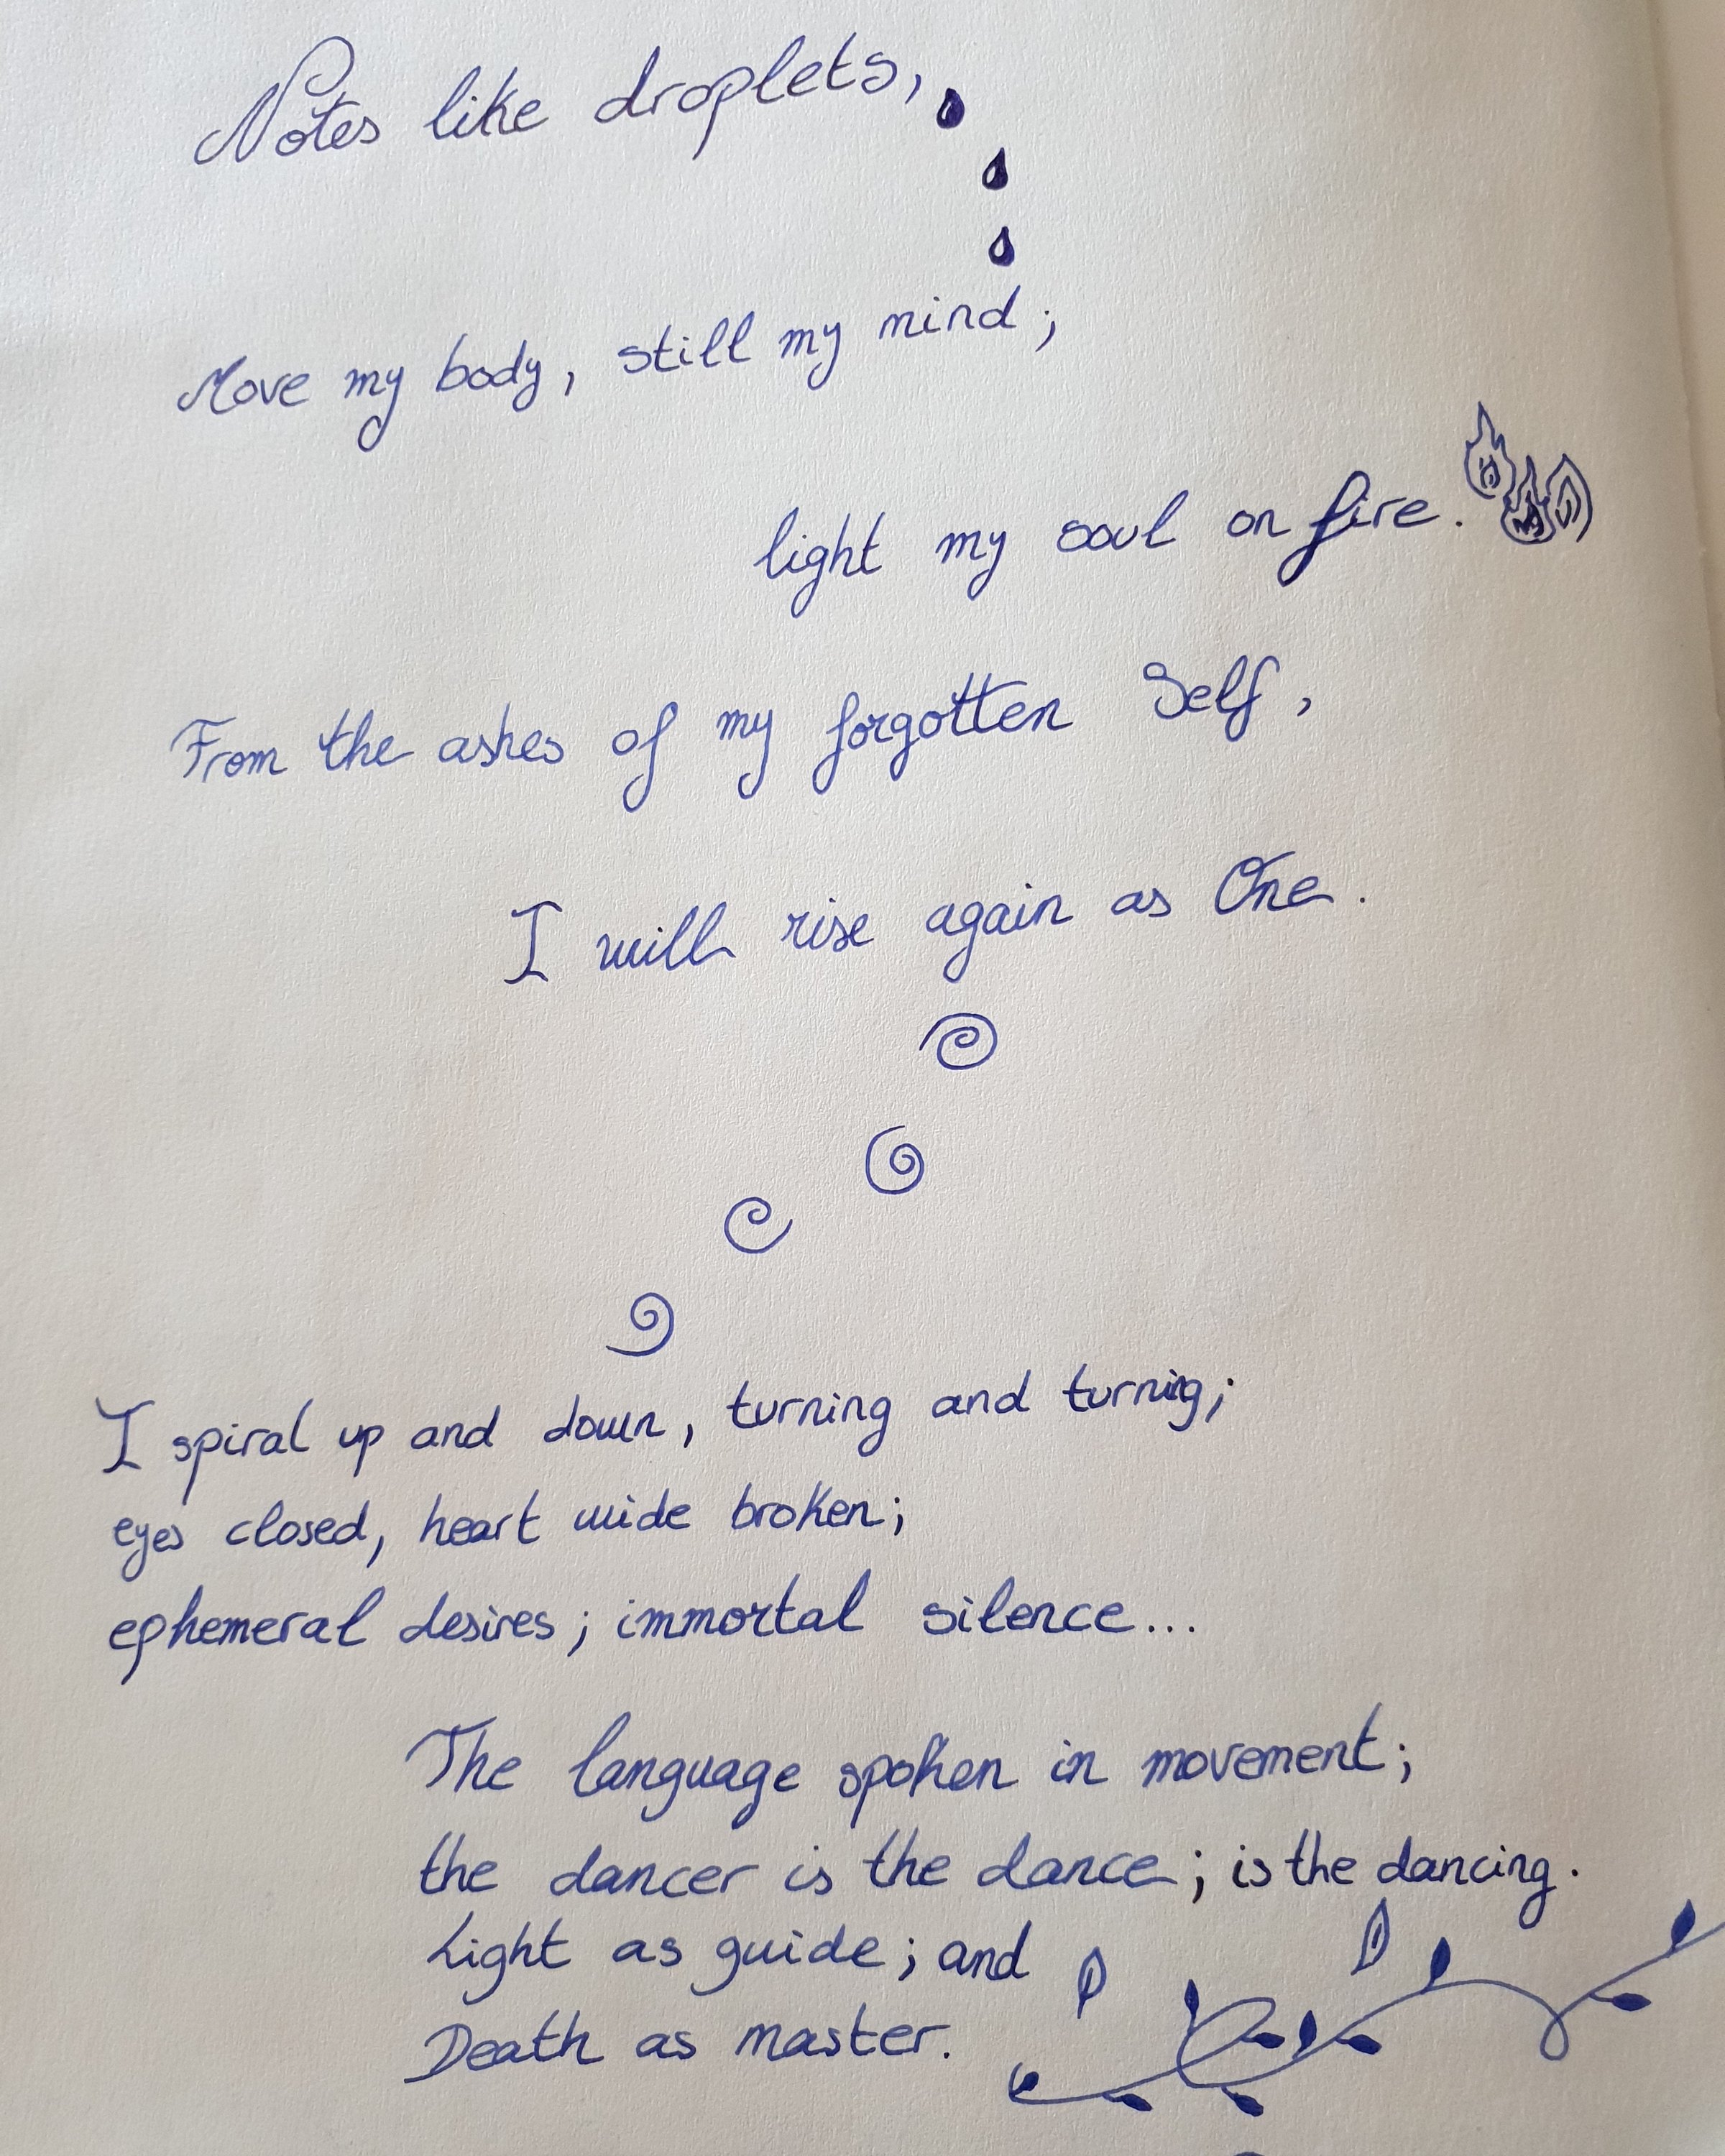 Notes like droplets,
Move my body, still my mind;
light my soul on fire.
From the ashes of my forgotten Self,
I will rise again as One.
I spiral up and down, turning and turning;
eyes closed, heart wide broken;
ephemeral desires; immortal silence...
The language spoken in movement;
the dancer is the dance; is the dancing.
Light as guide; and
Death as master.